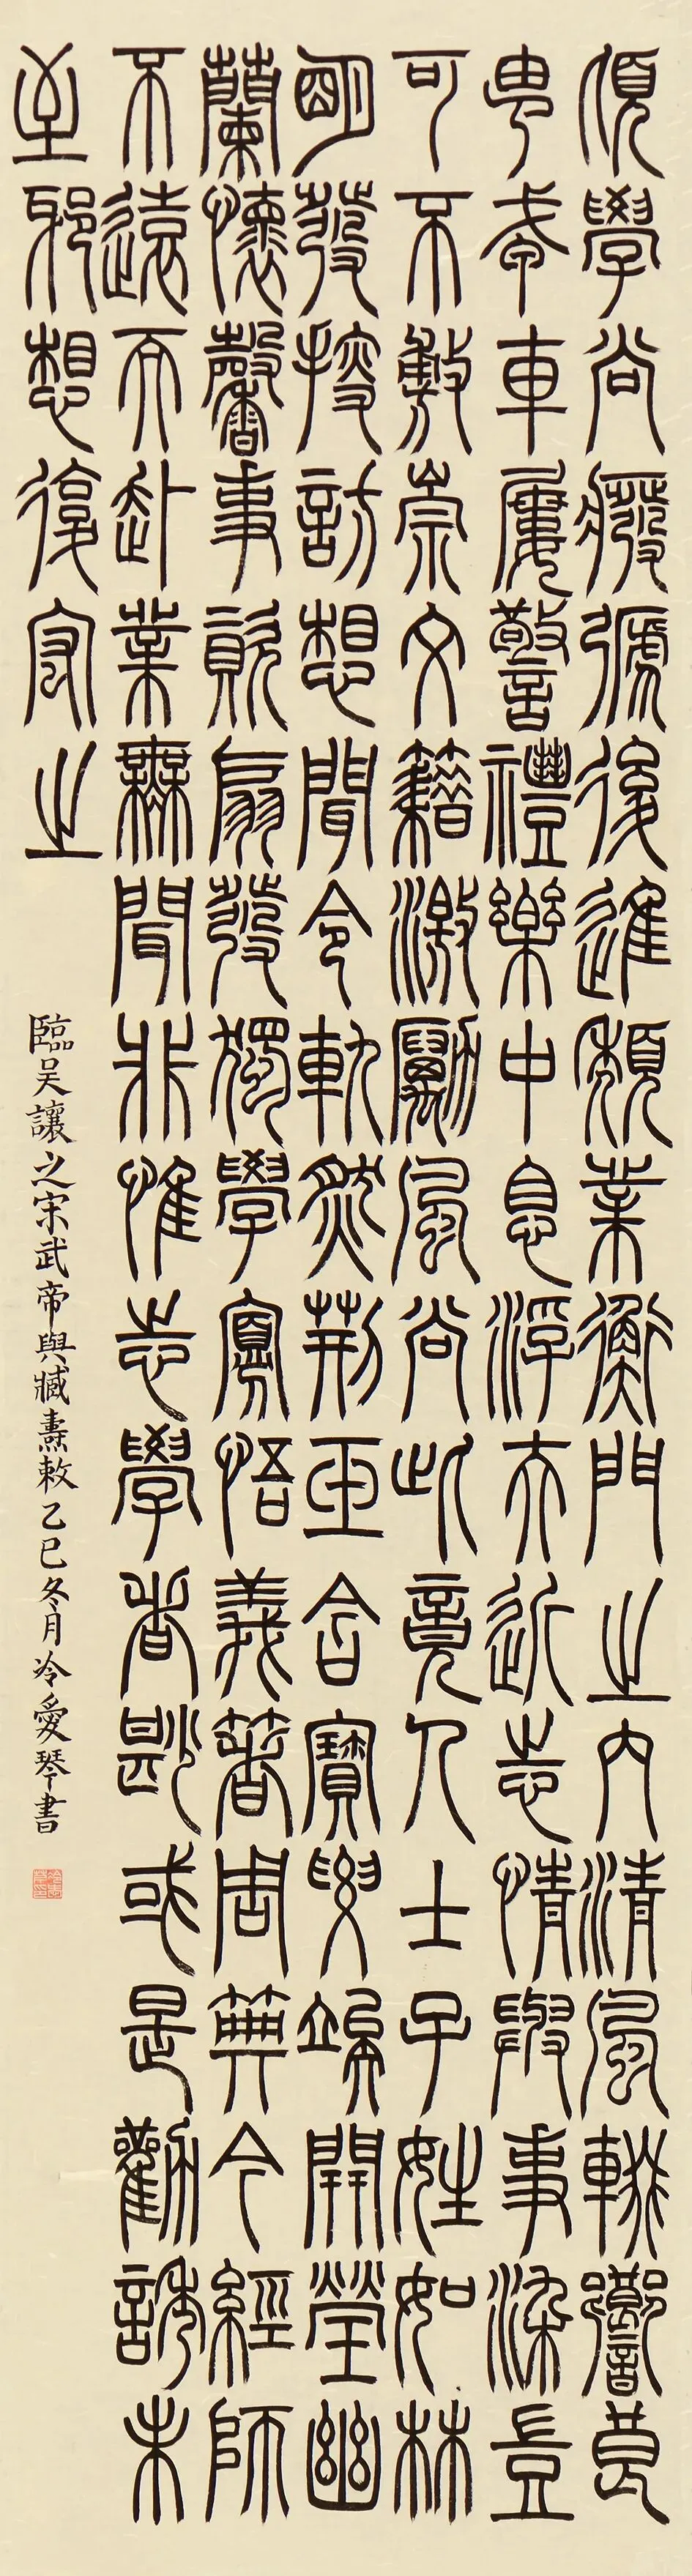 頃學尚廢弛後進頹業衡門之內清風輟響良
甹戎車屢警禮樂中息浮夫近志情與事染豈
可不敷崇文籍激勵風尚此竟人士子姪如林
朙發搜訪想聞令軌然荊玉含寶要竢開瑩幽
蘭懷馨事資扇發獨學寡悟義著周典今經師
不遠而赴業無聞非惟志學者尟或是勸誘未
至邪想復宏之
臨吳讓之宋武帝與臧燾敕乙巳冬月冷愛琴書